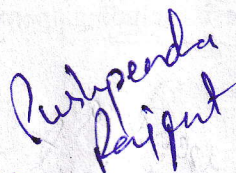 Pushpendra
Rajput